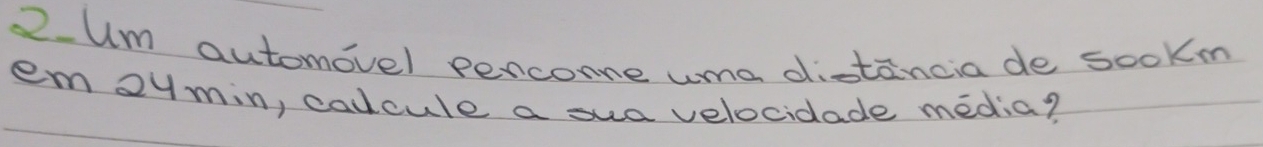 2-Um automóvel percorre uma distância de 500Km
em 24min, calcule a sua velocidade média?